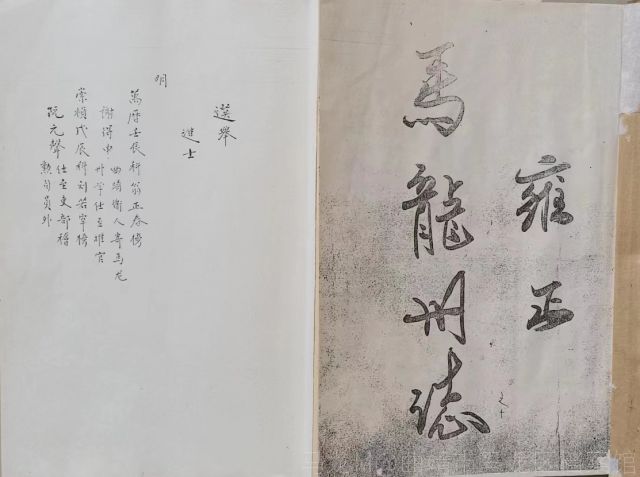 雍正
馬龍州誌
之十
選舉
進士
明
萬曆壬辰科翁正春榜
謝得申
曲靖衛人寄马龙
州学仕至推官
崇禎戊辰科刘若宰榜
阮元聲
仕至吏部稽
勲司員外